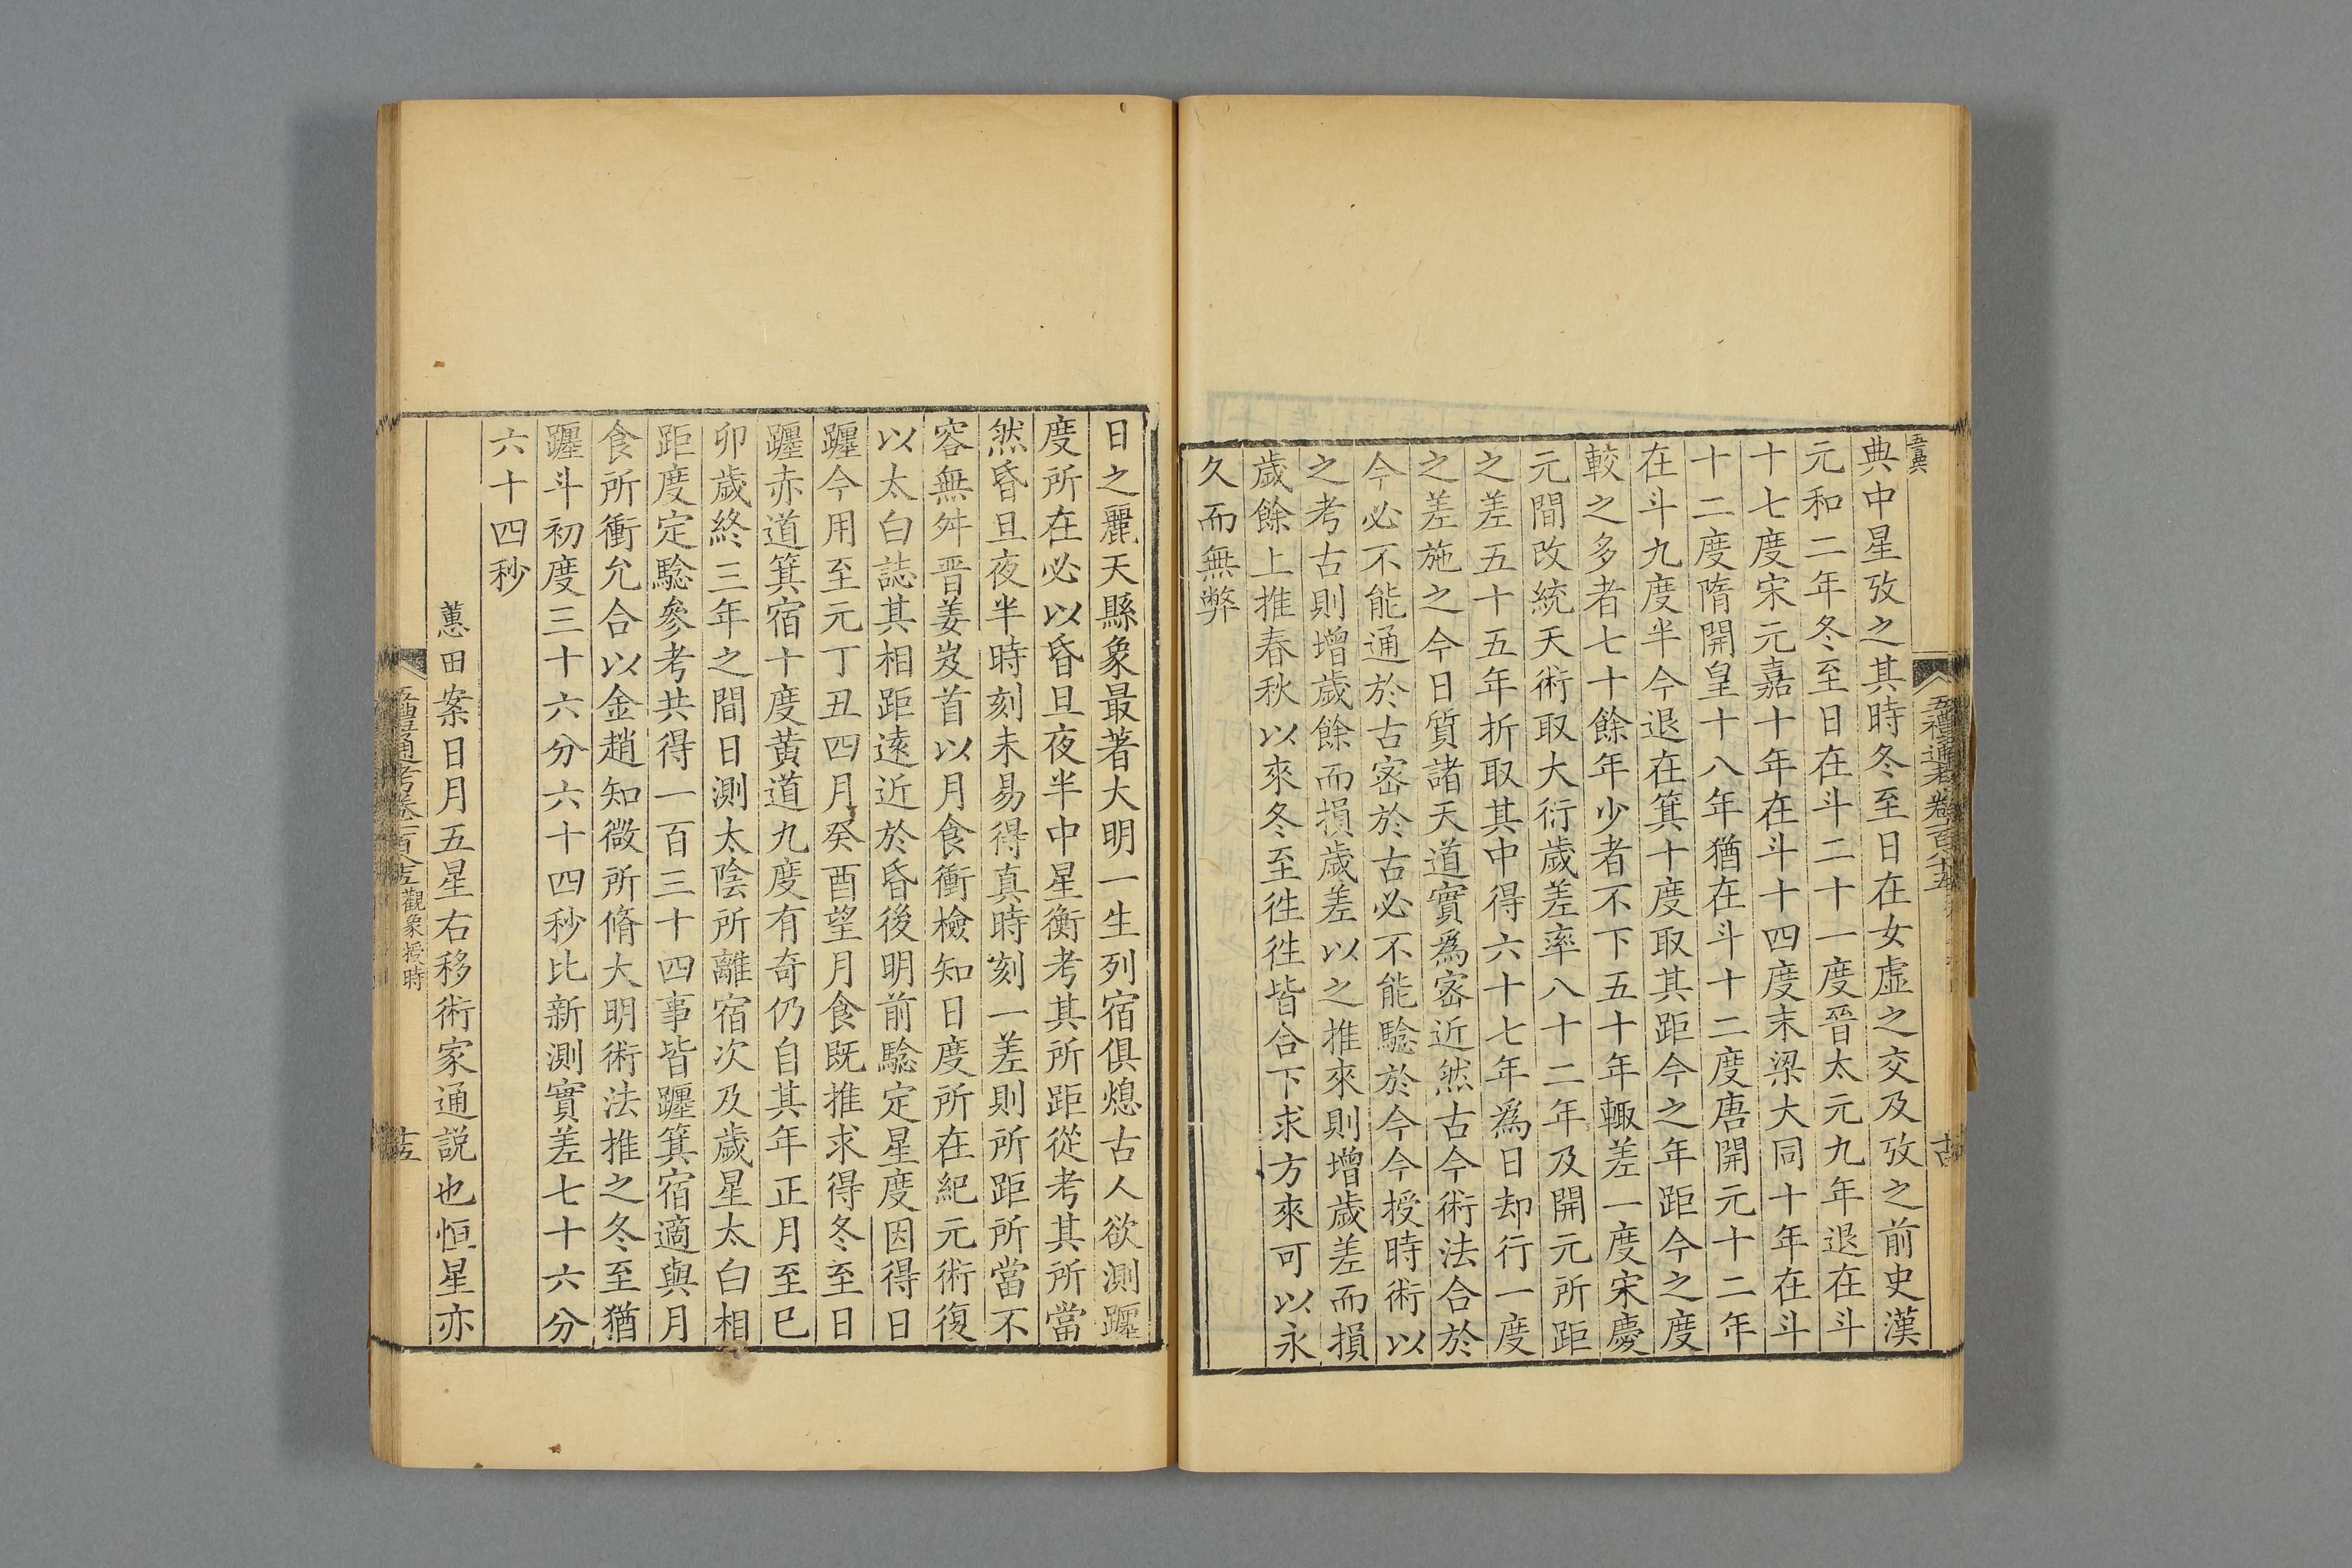 典中星攷之其時冬至日在女虛之交及攷之前史漢
元和二年冬至日在斗二十一度晉太元九年退在斗
十七度宋元嘉十年在斗十四度末梁大同十年在斗
十二度隋開皇十八年猶在斗十二度唐開元十二年
在斗九度半今退在箕十度取其距今之年距今之度
較之多者七十餘年少者不下五十年輙差一度宋慶
元間改統天術取大衍歲差率八十二年及開元所距
之差五十五年折取其中得六十七年爲日却行一度
之差施之今日質諸天道實爲宻近然古今術法合於
今必不能通於古宻於古必不能騐於今今授時術以
之考古則增歲餘而損歲差以之推來則增歲差而損
歲餘上推春秋以來冬至徃徃皆合下求方來可以永
久而無弊
日之麗天縣象最著大明一生列宿俱熄古人欲測躔
度所在必以昏旦夜半中星衡考其所距從考其所當
然昏旦夜半時刻未易得真時刻一差則所距所當不
容無舛晋姜岌首以月食衝檢知日度所在紀元術復
以太白誌其相距遠近於昏後明前騐定星度因得日
躔今用至元丁丑四月癸酉望月食既推求得冬至日
躔赤道箕宿十度黄道九度有奇仍自其年正月至巳
卯歲終三年之間日測太陰所離宿次及歲星太白相
距度定騐參考共得一百三十四事皆躔箕宿適與月
食所衝允合以金趙知微所脩大明術法推之冬至猶
躔斗初度三十六分六十四秒比新測實差七十六分
六十四秒
蕙田案日月五星右移術家通説也恒星亦
五禮通考卷一百八十五 觀象授時